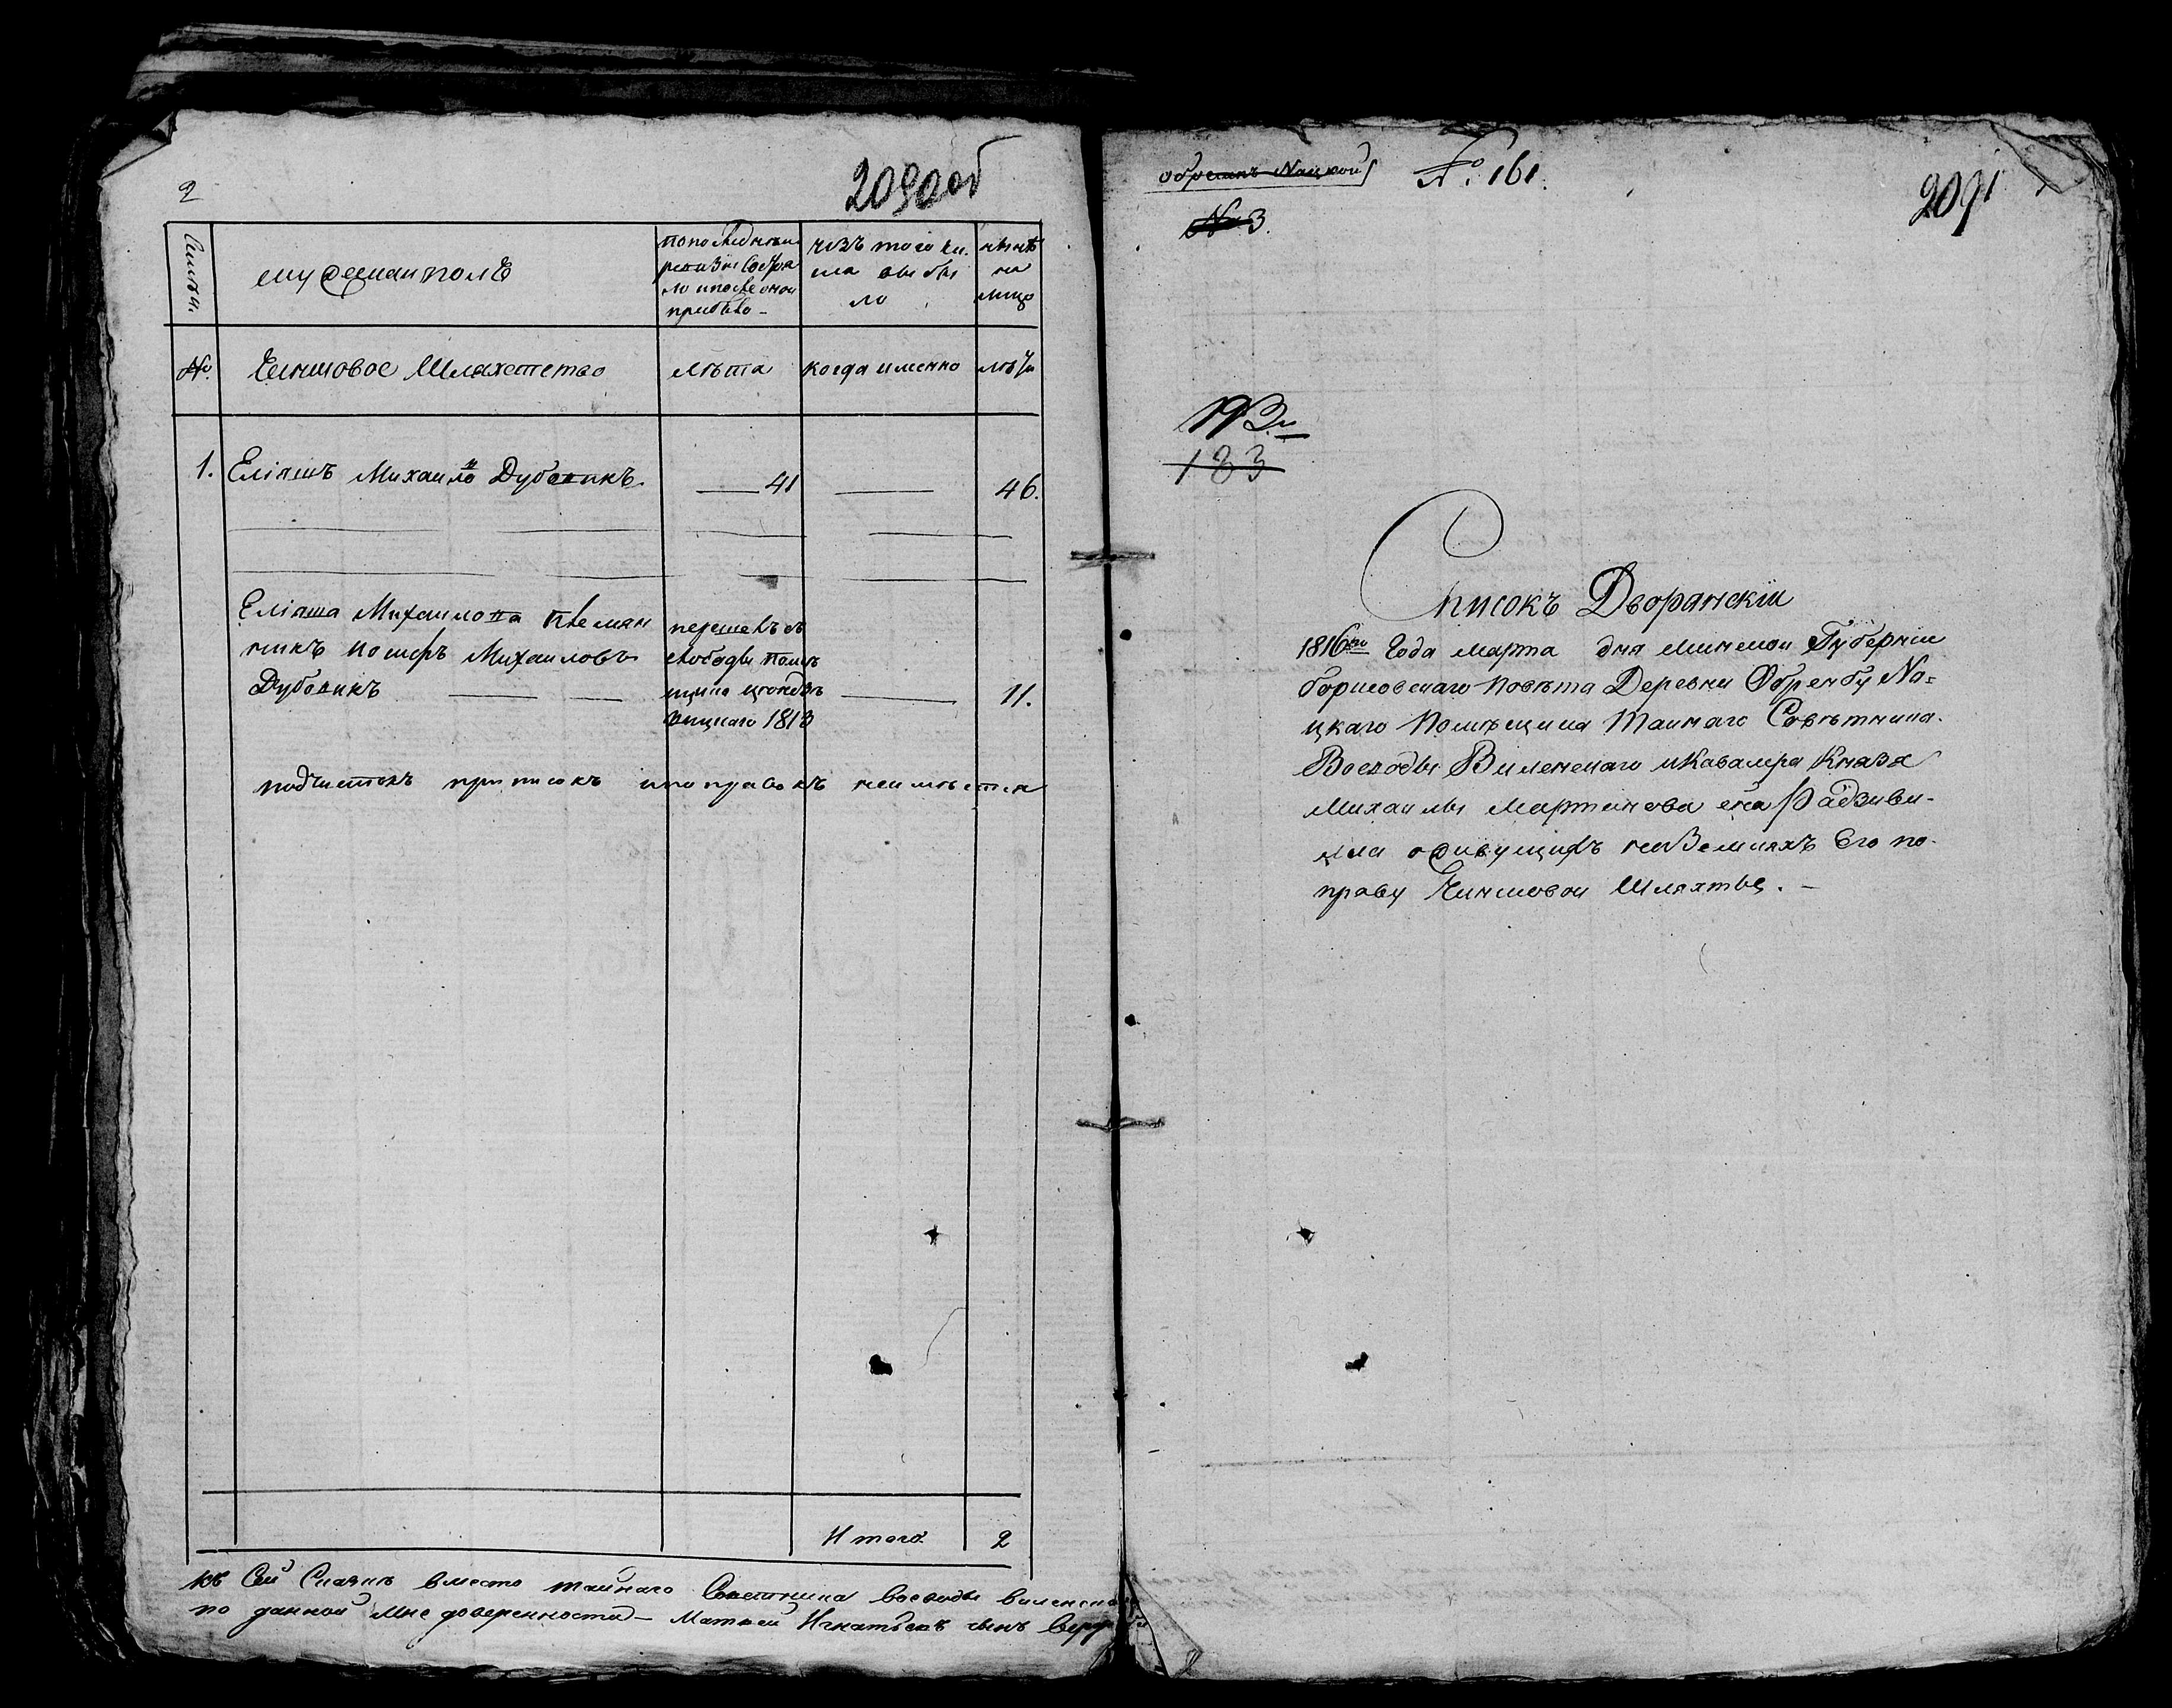 2
2090об
Семьи.
мужеский полъ
по последней
ревизіи состоя
ло и после оной
прибыло
изъ того чи
сла выбы
ло
ныне
на
лицо
№.
Чиншовое Шляхетство
лѣта
когда именно
лѣта
1. Еліяшъ Михайло Дубовикъ 41 46.
Еліяша Михайлова племян
никъ Іосифъ Михайловъ
Дубовикъ 11.
перешелъ съ
слободы помѣ
щика
1813
подчистокъ приписокъ и поправокъ неимѣется
Итого 2
къ Сей Сказкѣ вместо тайнаго Советника воеводы виленска
по данной мне доверенности Матвей Игнатьевъ сынъ
обремкъ Нацкой
№. 161.
№ 3.
2091
193.
183
Списокъ Дворянскій
1816го Года марта дня минской Губерніи
борисовскаго повѣта Деревни Обренбу На=
цкаго помѣщика Тайнаго Совѣтника
Воеводы Виленскаго и Кавалера Князя
Михайлы Мартинова сна Радзиви-
ла живущихъ на Земляхъ Его по
праву Чиншовой Шляхты. –